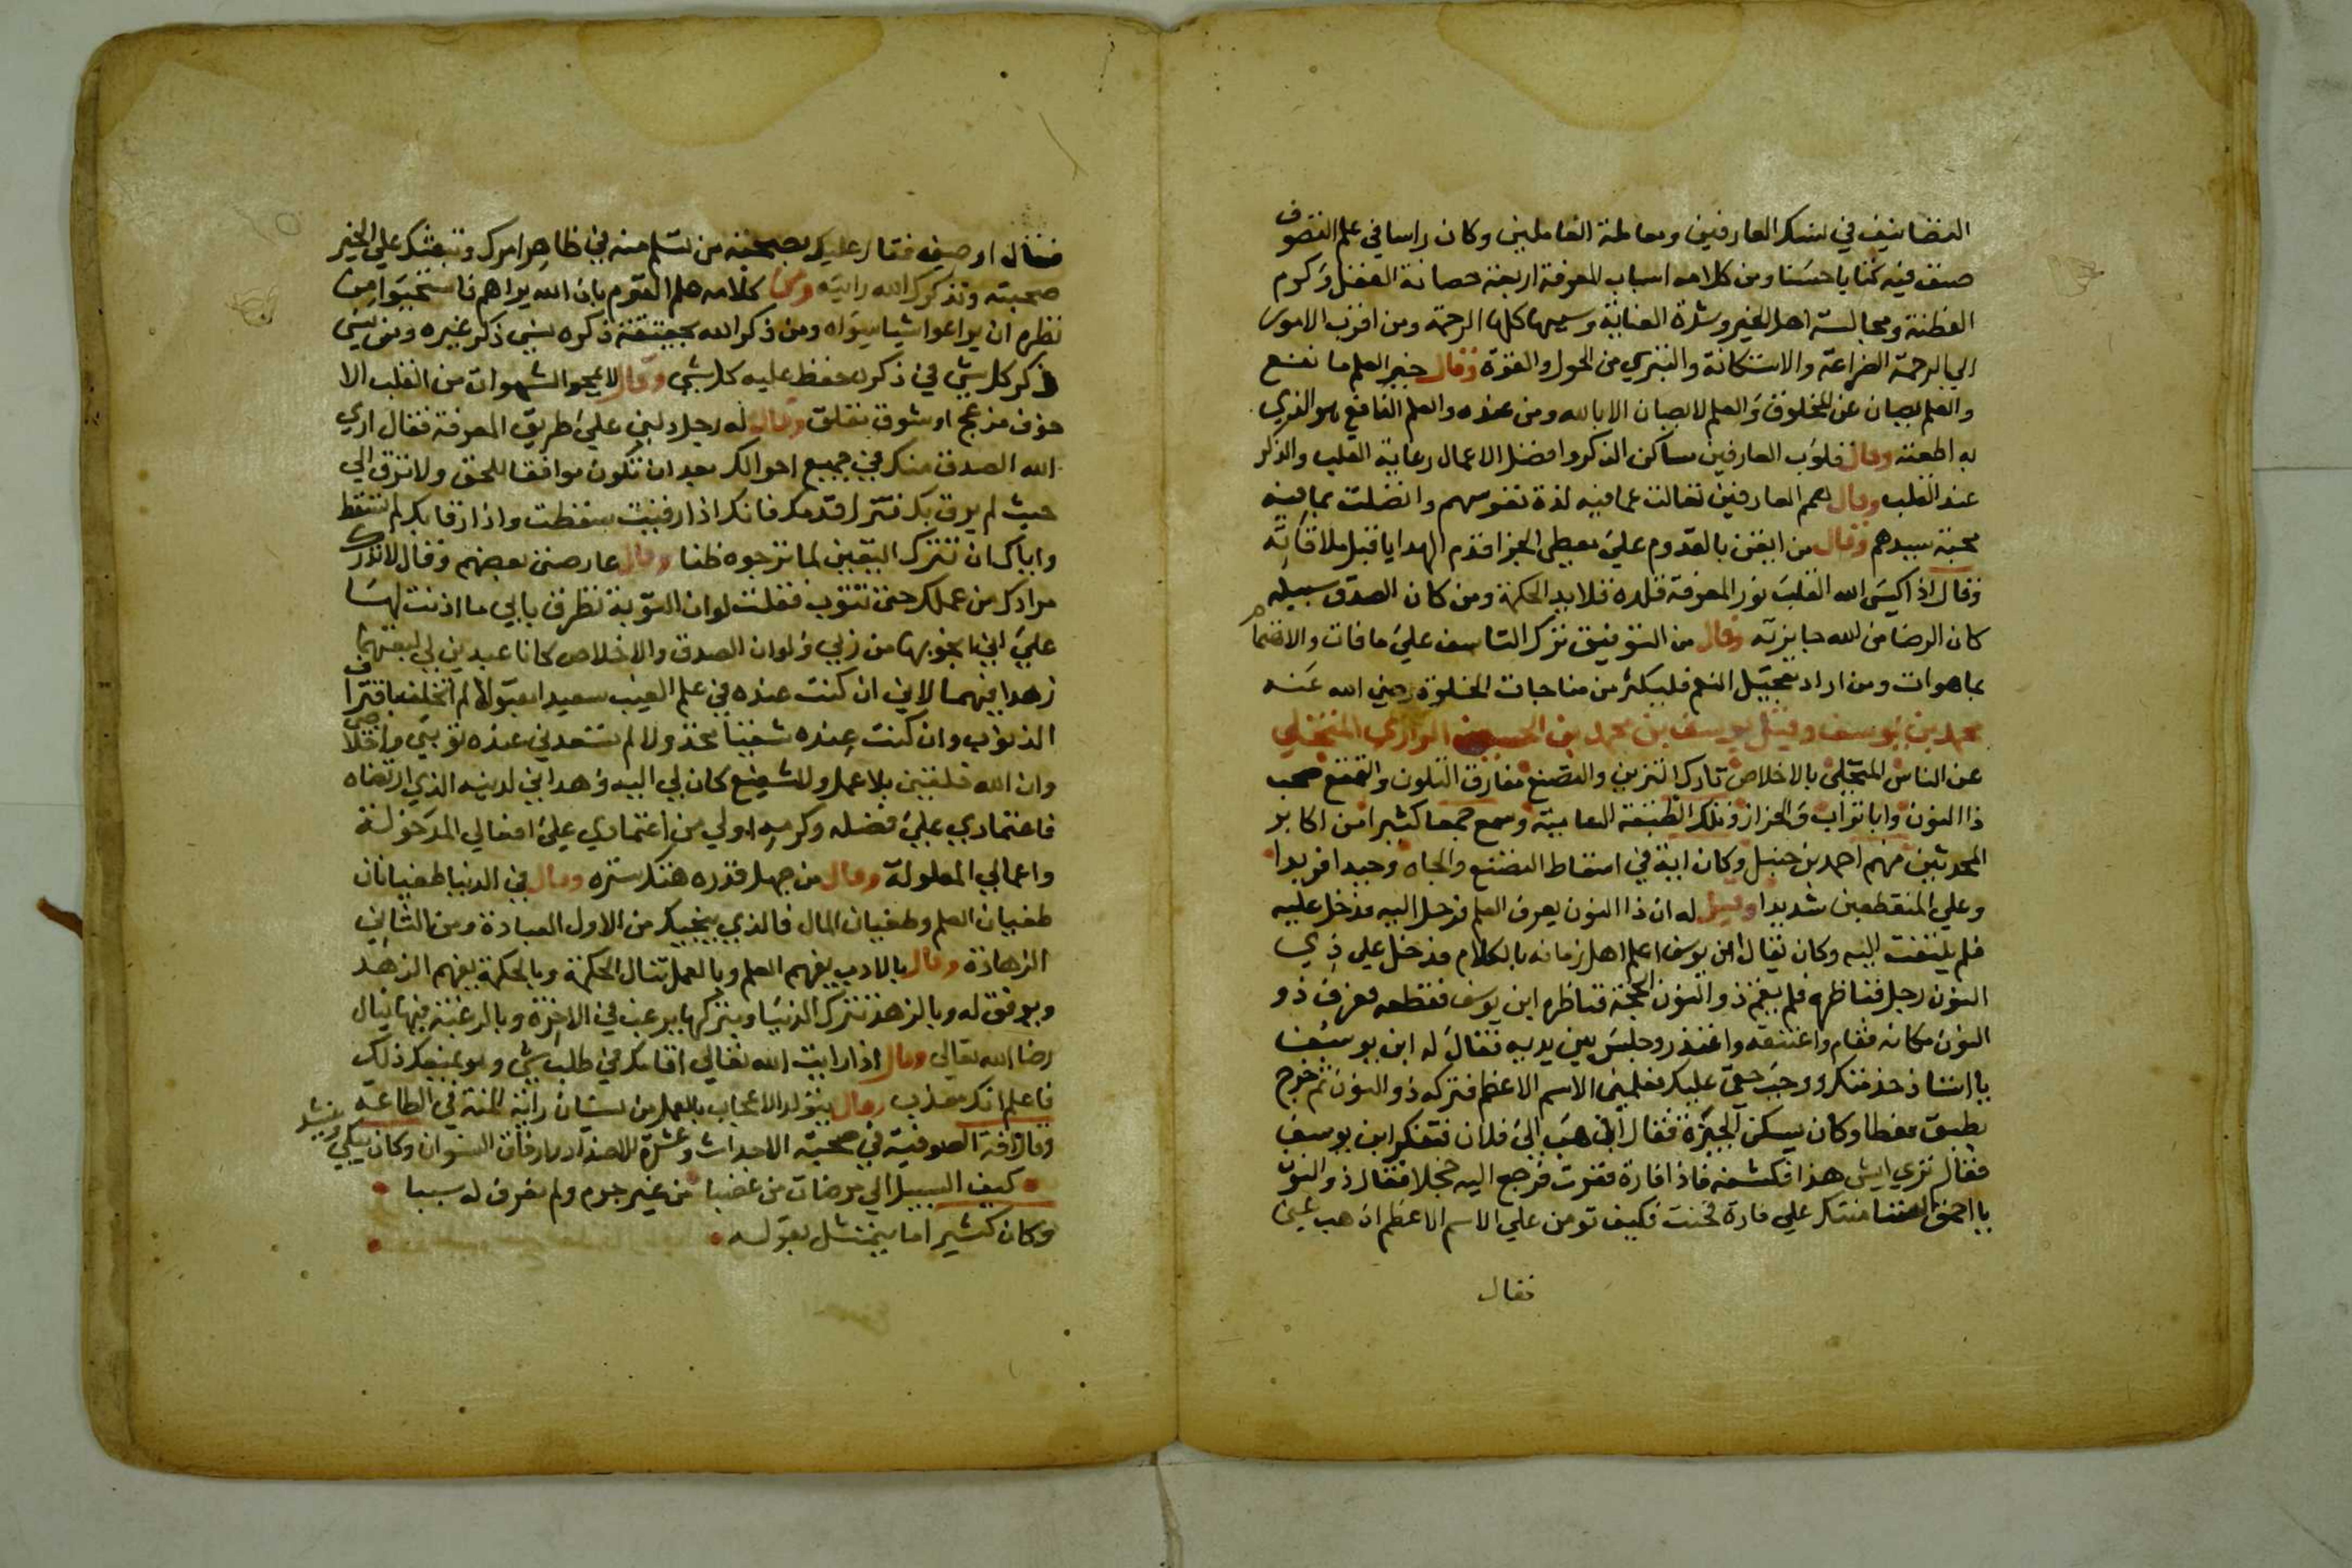 التصانيف في نسك العارفين ومعاملة العاملين وكان راسا في علم التصوف
صنف فيه كتابا حسنا ومن كلامه اسباب المعرفة اربعة حصانة العقل وكرم
الفطنة ومجالسة اهل الخير وشدة العناية وسببها كلها الرحمة ومن اقرب الامور
الي الرحمة الضراعة والاستكانة والتبري من الحول والقوة وقال خير العلم ما نفع
والعلم يصان عن المخلوق والعلم لا يصان الا بالله ومن عنده والعلم النافع هو الذي
به اطعته وقال قلوب العارفين مساكن الذكر وافضل الاعمال رعاية القلب والذكر
عند القلب وقال همم العارفين تعالت عما فيه لذة نفوسهم واتصلت بما فيه
محبة سيدهم وقال من ايقن بالقدوم علي معطي الجزا قدم الهدايا قبل ملاقاته
وقال اذا كسي الله القلب نور المعرفة قلده قلايد الحكمة ومن كان الصدق سبيله
كان الرضا من الله جايزته وقال من التوفيق ترك التاسف علي ما فات والاهتمام
بما هو ات ومن اراد تعجيل النعم فليكثر من مناجات الخلوة رضي الله عنه
محمد بن يوسف وقيل يوسف بن محمد بن الحسين الرازي المتخلي
عن الناس المتجلي بالاخلاص تارك التزين والتصنع مفارق التلون والتمتع صحب
ذا النون وابا تراب والخراز وتلك الطبقة العالية وسمع جمعا كثيرا من اكابر
المحدثين منهم احمد بن حنبل وكان اية في اسقاط التصنع والجاه وحيدا فريدا
وعلي المنقطعين شديدا وقيل له ان ذا النون يعرف العلم فرحل اليه فدخل عليه
فلم يلتفت اليه وكان يقال ابن يوسف اعلم اهل زمانه بالكلام فدخل علي ذي
النون رجل فناظره فلم يقم ذو النون الحجة فناظره ابن يوسف فقطعه فعرف ذو
النون مكانه فقام واعتنقه واعتذر وجلس بين يديه فقال له ابن يوسف
يا استاذ خدمتك ووجب حقي عليك فعلمني الاسم الاعظم فتركه ذو النون ثم خرج
بطبق مغطا وكان يسكن الجيزة فقال اذهب الي فلان فتفكر ابن يوسف
فقال تري ايش هذا فكشفه فاذا فارة ففرت فرجع اليه خجلا فقال ذو النون
يا احمق ائتمنتك علي فارة فخنت فكيف تومن علي الاسم الاعظم اذهب عني
فقال
فقال اوصيني فقال عليك بصحبة من تسلم منه في ظاهر امرك وتبعثك علي الخير
صحبته وتذكرك الله رايته ومن كلامه علم القوم بان الله يراهم فاستحيوا من
نظره ان يراعوا شيا سواه ومن ذكر الله بحقيقة ذكره نسي ذكر غيره ومن نسي
ذكر كل شي في ذكره حفظ عليه كل شي وقال لا يمحو الشهوات من القلب الا
خوف مزعج او شوق مقلق وقال له رجل دلني علي طريق المعرفة فقال اري
الله الصدق منك في جميع احوالك بعد ان تكون موافقا للحق ولا ترق الي
حيث لم يرق بك فتزل قدمك فانك اذا رقيت سقطت واذا رقا بك لم تسقط
واياك ان تترك اليقين لما ترجوه ظنا وقال عارضني بعضهم وقال لا تدرك
مرادك من عملك حتي تتوب فقلت لو ان التوبة تطرق بابي ما اذنت لها
علي اني انجو بها من ربي ولو ان الصدق والاخلاص كانا عبدين لي لبعتهما
زهدا فيهما لاني ان كنت عنده في علم الغيب سعيدا مقبولا لم اتخلف باقتراف
الذنوب وان كنت عنده شقيا مخذولا لم تسعدني عنده توبتي واخلاصي
وان الله خلقني بلا عمل ولا شفيع كان لي اليه وهداني لدينه الذي ارتضاه
فاعتمادي علي فضله وكرمه اولي من اعتمادي علي افعالي المدخولة
واعمالي المعلولة وقال من جهل قدره هتك ستره وقال في الدنيا طغيانان
طغيان العلم وطغيان المال فالذي ينجيك من الاول العبادة ومن الثاني
الزهادة وقال بالادب يفهم العلم وبالعمل تنال الحكمة وبالحكمة يفهم الزهد
ويوفق له وبالزهد تترك الدنيا وبتركها يرغب في الاخرة وبالرغبة فيها ينال
رضا الله تعالي وقال اذا رايت الله تعالي اقامك في طلب شي وهو يمنعك ذلك
فاعلم انك معذب وقال يتولد الاعجاب بالعمل من نسيان راية المنة في الطاعة
وقال افة الصوفية في صحبة الاحداث وعشرة الاضداد وارفاق النسوان وكان يبكي وينشد
كيف السبيل الي مرضات من غضبا من غير جرم ولم يعرف له سببا
وكان كثيرا ما يتمثل بقوله